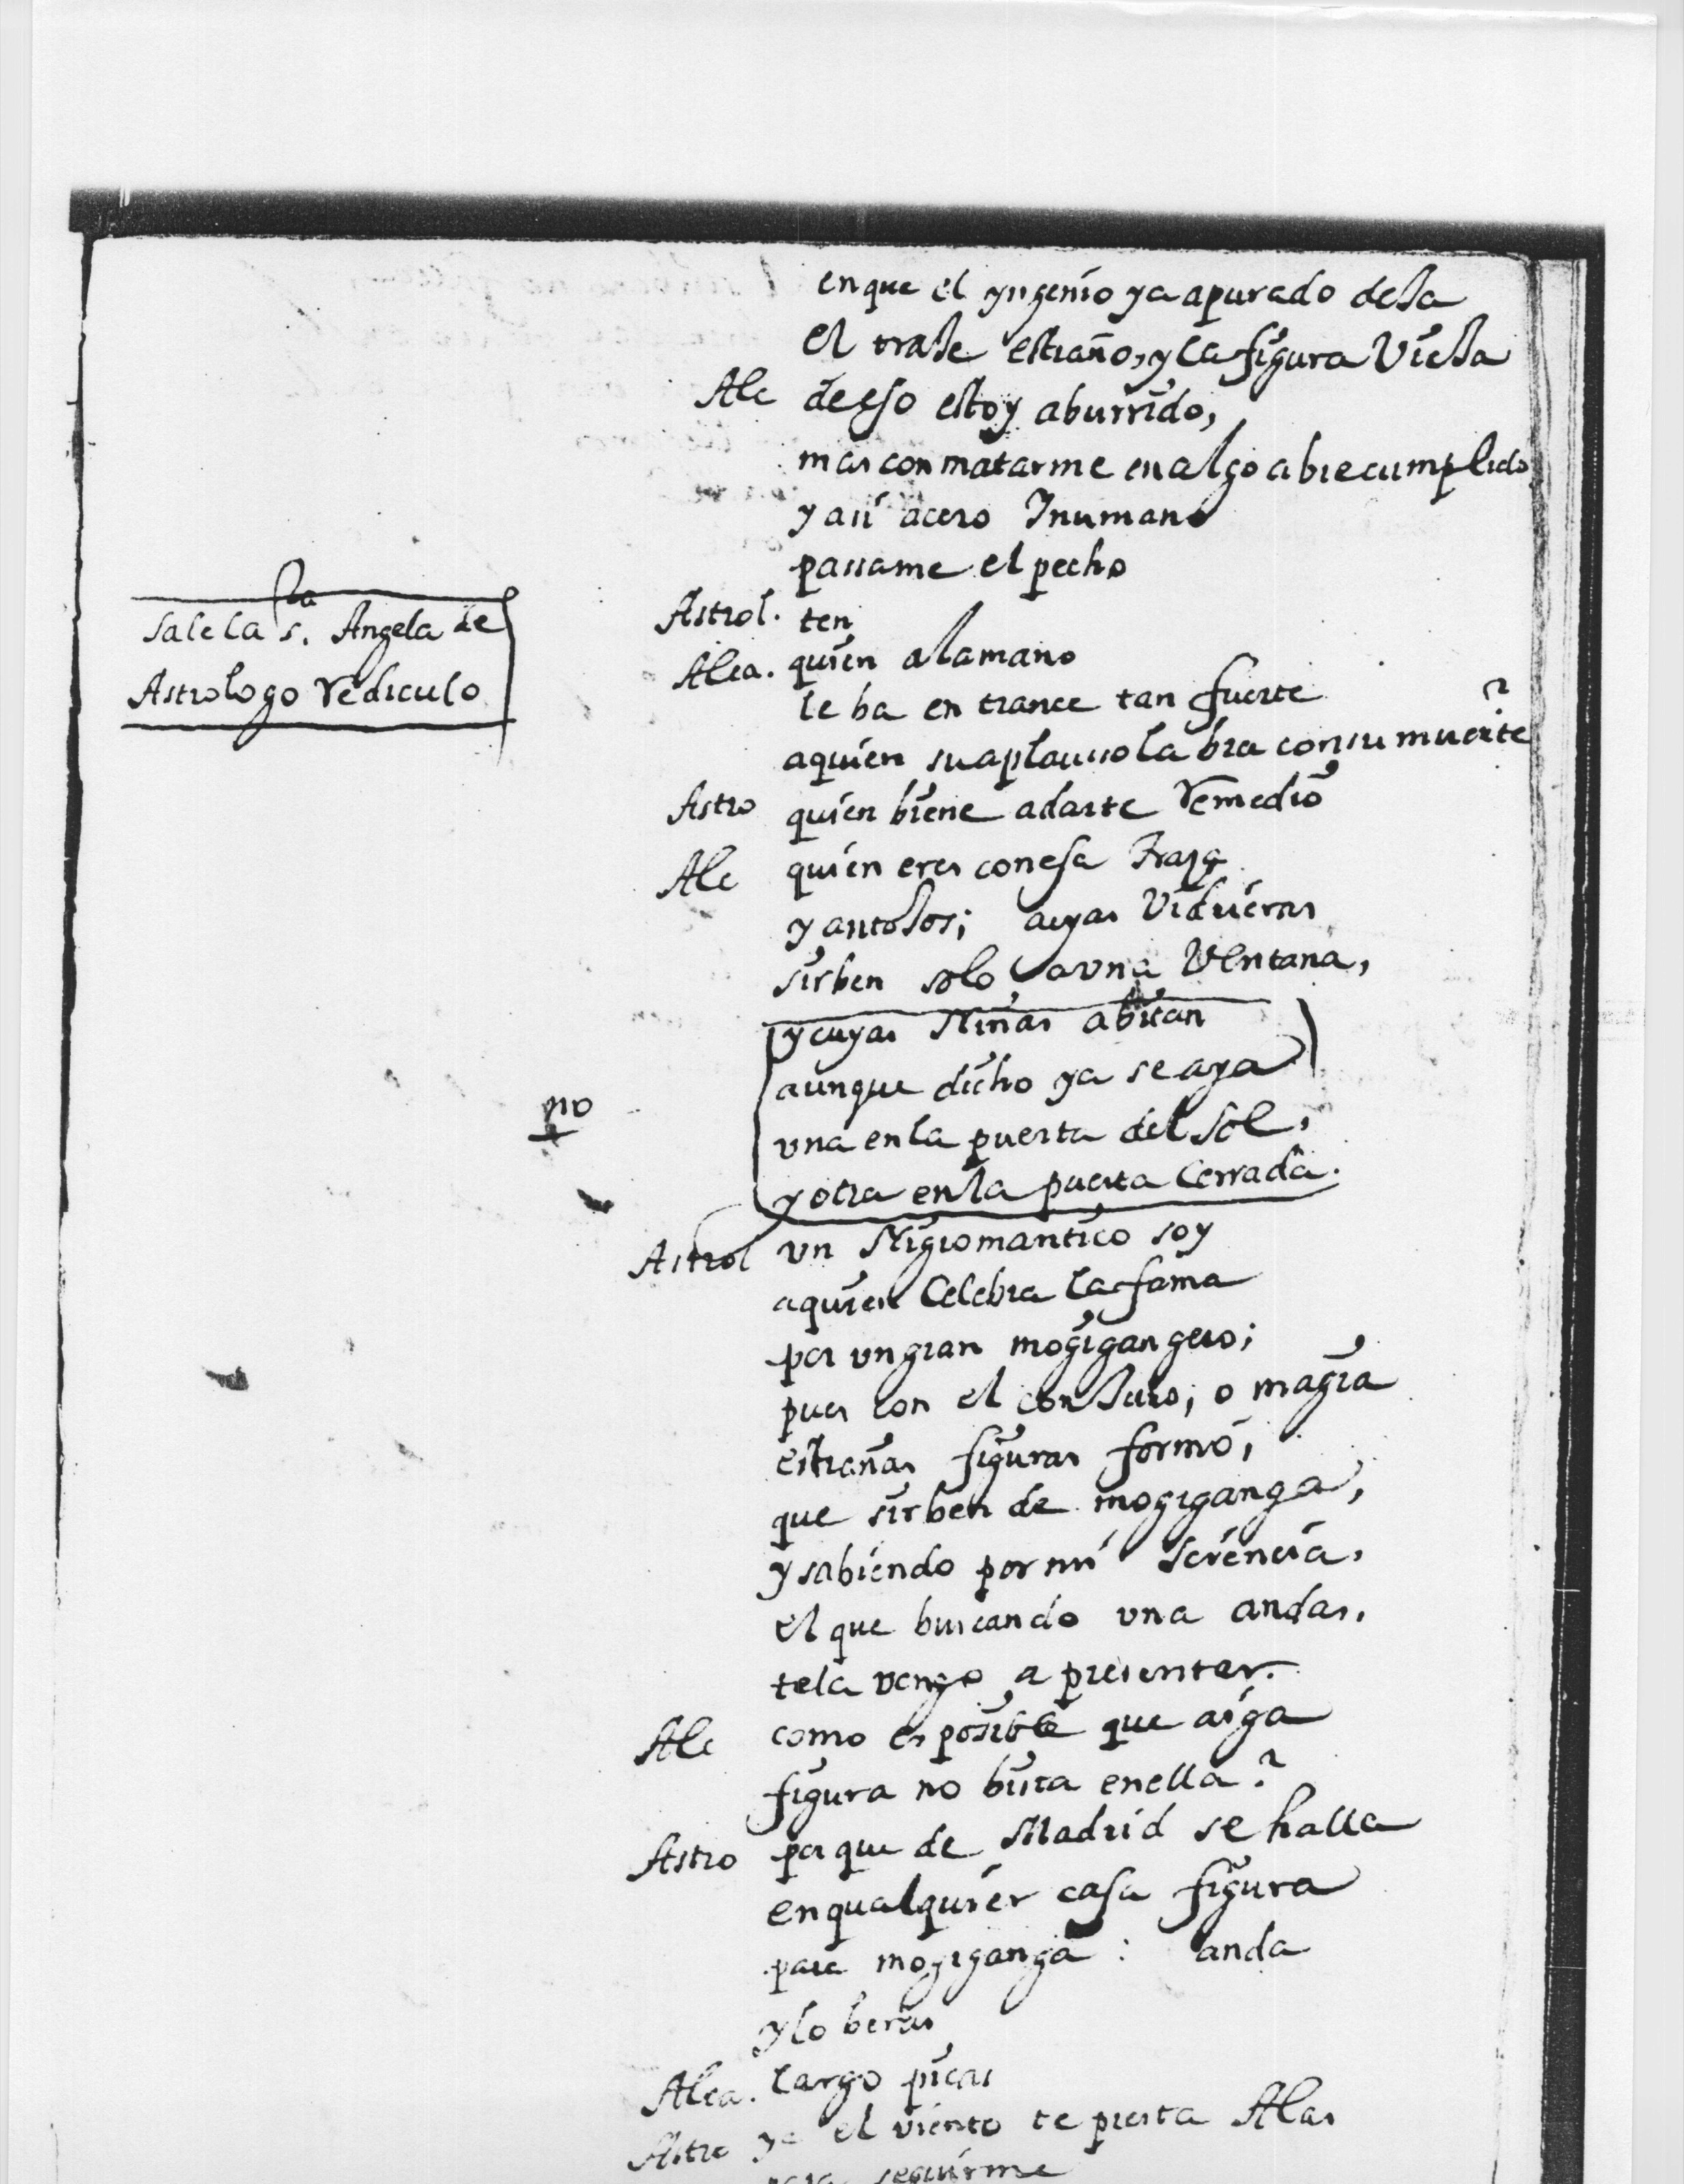 en que el yngenio ya apurado deja
el traje estraño, y la figura Vieja
Alc de eso estoy aburrido,
mas con matarme en algo abre cumplido
y asi acero Inumano
passame el pecho
Astrol. ten
Sale la s.ra Angela de
Astrologo Rediculo
Alca. quien a la mano
le ba en trance tan fuerte
a quien su aplauso labra con su muerte?
Astro quien biene a darte Remedio
Alc quien eres con esa Traza
y antojos; cuyas Vidueras
sirben solo a vna Ventana,
y cuyas Niñas abitan
aunque dicho ya se aya
no
vna en la puerta del Sol,
y otra en la puerta Cerrada.
Astrol vn Nigromantico soy
a quien Celebra la fama
por vn gran mogigangero;
pues con el conjuro, o magia
estrañas figuras formo,
que sirben de mogiganga,
y sabiendo por mi sciencia,
el que buscando vna andas,
te la vengo a presentar.
Alc como es posible que aiga
figura no bista en ella?
Astro por que de Madrid se halla
en qualquier casa figura
para mogiganga: anda
y lo beras
Alca. largo picas
Astro ya el viento te presta Alas
para seguirme